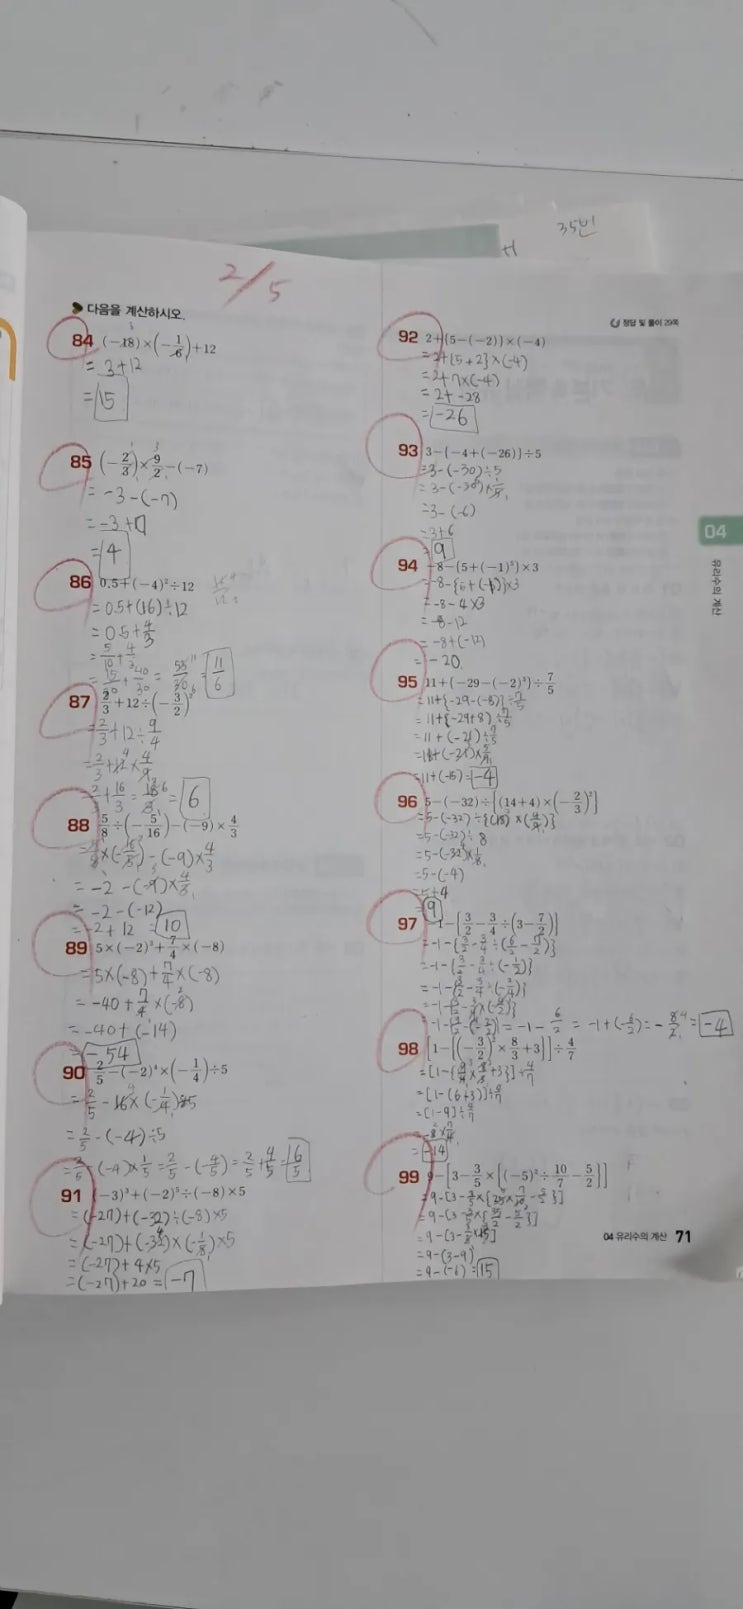 35번
2/5
다음을 계산하시오.
정답 및 풀이 29쪽
84 (-18)×(-1/6)+12
= 3+12
= 15
85 (-2/3)×9/2-(-7)
= -3-(-7)
= -3+7
= 4
86 0.5+(-4)²÷12
= 0.5+(16)÷12
= 0.5+4/3
= 5/10+4/3
= 15/30+40/30 = 55/30 = 11/6
87 2/3+12÷(-3/2)²
= 2/3+12÷9/4
= 2/3+12×4/9
= 2/3+16/3 = 18/3 = 6
88 5/8÷(-5/16)-(-9)×4/3
= 5/8×(-16/5)-(-9)×4/3
= -2-(-9)×4/3
= -2-(-12)
= -2+12 = 10
89 5×(-2)³+7/4×(-8)
= 5×(-8)+7/4×(-8)
= -40+7/4×(-8)
= -40+(-14)
= -54
90 2/5-(-2)⁴×(-1/4)÷5
= 2/5-16×(-1/4)÷5
= 2/5-(-4)÷5
= 2/5-(-4)×1/5 = 2/5-(-4/5) = 2/5+4/5 = 6/5
91 (-3)³+(-2)⁵÷(-8)×5
= (-27)+(-32)÷(-8)×5
= (-27)+(-32)×(-1/8)×5
= (-27)+4×5
= (-27)+20 = -7
92 2+{5-(-2)}×(-4)
= 2+{5+2}×(-4)
= 2+7×(-4)
= 2+-28
= -26
93 3-{-4+(-26)}÷5
= 3-(-30)÷5
= 3-(-30)×1/5
= 3-(-6)
= 3+6
= 9
94 -8-{5+(-1)⁵}×3
= -8-{5+(-1)}×3
= -8-4×3
= -8-12
= -8+(-12)
= -20
95 11+{-29-(-2)³}÷7/5
= 11+{-29-(-8)}÷7/5
= 11+{-29+8}÷7/5
= 11+(-21)÷7/5
= 11+(-21)×5/7
= 11+(-15) = -4
96 5-(-32)÷{(14+4)×(-2/3)²}
= 5-(-32)÷{(18)×(4/9)}
= 5-(-32)÷8
= 5-(-32)×1/8
= 5-(-4)
= 5+4
= 9
97 -1-{3/2-3/4÷(3-7/2)}
= -1-{3/2-3/4÷(6/2-7/2)}
= -1-{3/2-3/4÷(-1/2)}
98 [1-{(-3/2)²×8/3+3}]÷4/7
= [1-{9/4×8/3+3}]÷4/7
= [1-(6+3)]÷4/7
= [1-9]÷4/7
= -8×7/4
= -14
99 9-[3-3/5×{(-5)²÷10/7-5/2}]
= 9-[3-3/5×{25×7/10-5/2}]
= 9-[3-3/5×{35/2-5/2}]
= 9-[3-3/5×15]
= 9-(3-9)
= 9-(-6) = 15
04
유리수의 계산
04 유리수의 계산 71